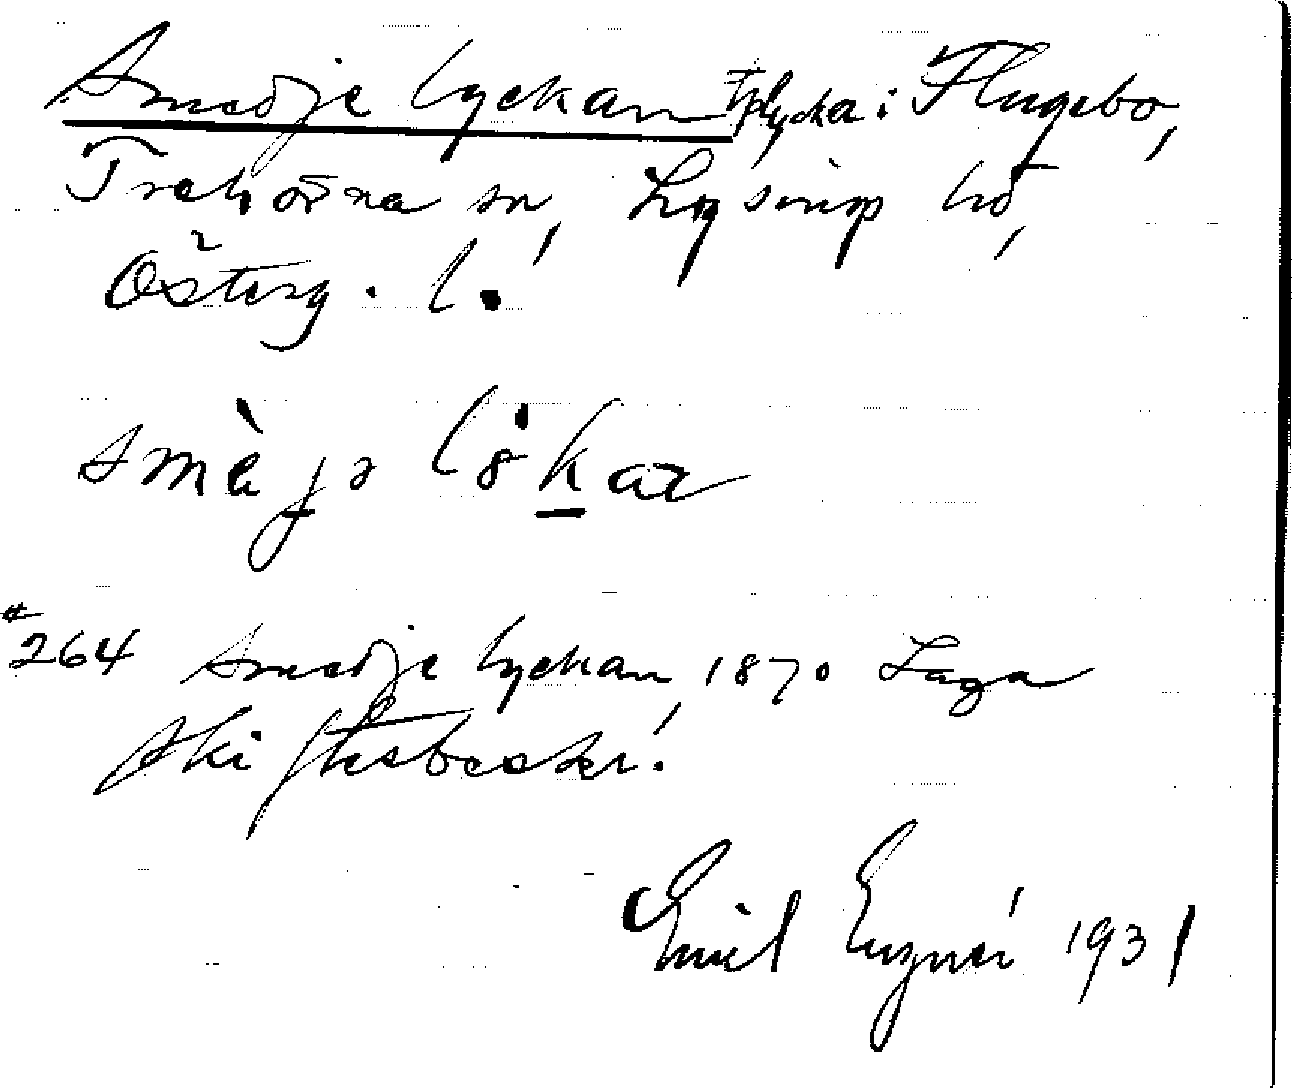 Smedjelyckan tplycka i Flugebo,
Trehörna sn, Lysings hd,
Österg. l.
smèjə lö́kaɳ
264 Smedjelyckan, 1870 Laga
skiftesbeskr.
Emil Euznér 1931